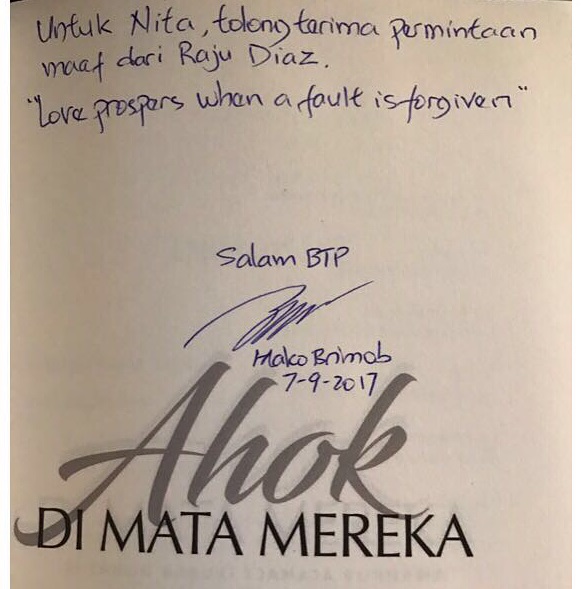 Untuk Nita, tolong terima permintaan
maaf dari Raju Diaz.
"Love prospers when a fault is forgiven"
Salam BTP
Mako Brimob
7-9-2017
Ahok
DI MATA MEREKA